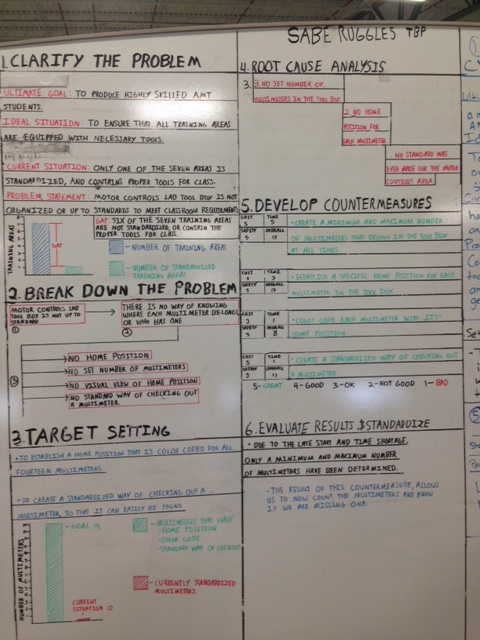 SABE RUGGLES TBP
1. CLARIFY THE PROBLEM
ULTIMATE GOAL: TO PRODUCE HIGHLY SKILLED AMT
STUDENTS.
IDEAL SITUATION: TO ENSURE THAT ALL TRAINING AREAS
ARE EQUIPPED WITH NECESSARY TOOLS.
CURRENT SITUATION: ONLY ONE OF THE SEVEN AREAS IS
STANDARDIZED, AND CONTAINS PROPER TOOLS FOR CLASS.
PROBLEM STATEMENT: MOTOR CONTROLS LAB TOOL BOX IS NOT
ORGANIZED OR UP TO STANDARDS TO MEET CLASSROOM REQUIREMENTS
GAP: SIX OF THE SEVEN TRAINING AREAS
ARE NOT STANDARDIZED, OR CONTAIN THE
PROPER TOOLS FOR CLASS.
TRAINING AREAS
GAP
- NUMBER OF TRAINING AREAS
- NUMBER OF STANDARDIZED
TRAINING AREAS
2. BREAK DOWN THE PROBLEM
MOTOR CONTROLS LAB
TOOL BOX IS NOT UP TO
STANDARD
①
THERE IS NO WAY OF KNOWING
WHERE EACH MULTIMETER BELONGS
OR WHO HAS ONE
②
③
NO HOME POSITION
NO SET NUMBER OF MULTIMETERS
NO VISUAL VIEW OF HOME POSITION
NO STANDARD WAY OF CHECKING OUT
A MULTIMETER.
3. TARGET SETTING
• TO ESTABLISH A HOME POSITION THAT IS COLOR CODED FOR ALL
FOURTEEN MULTIMETERS.
• TO CREATE A STANDARDIZED WAY OF CHECKING OUT A
MULTIMETER, SO THAT IT CAN EASILY BE FOUND
NUMBER OF MULTIMETERS
- GOAL 14
CURRENT
SITUATION 0
- MULTIMETERS THAT HAVE
· HOME POSITION
· COLOR CODE
· STANDARD WAY OF CHECKOUT
- CURRENTLY STANDARDIZED
MULTIMETERS.
4. ROOT CAUSE ANALYSIS
3.
3. NO SET NUMBER OF
MULTIMETERS IN THE TOOL BOX
2. NO HOME
POSITION FOR
EACH MULTIMETER
NO STANDARD WAS
EVER MADE FOR THE MOTOR
CONTROLS AREA.
5. DEVELOP COUNTERMEASURES
COST TIME
5 5
SAFETY OVERALL
5
- CREATE A MINIMUM AND MAXIMUM NUMBER
OF MULTIMETERS THAT BELONG IN THE TOOL BOX
AT ALL TIMES.
COST TIME
SAFETY OVERALL
- ESTABLISH A SPECIFIC HOME POSITION FOR EACH
MULTIMETER IN THE TOOL BOX.
COST TIME
SAFETY OVERALL
- COLOR CODE EACH MULTIMETER WITH IT'S
HOME POSITION
COST TIME
SAFETY OVERALL
- CREATE A STANDARDIZED WAY OF CHECKING OUT
A MULTIMETER
5- GREAT 4- GOOD 3- OK 2- NOT GOOD 1- BAD
6. EVALUATE RESULTS & STANDARDIZE
• DUE TO THE LATE START AND TIME SHORTAGE,
ONLY A MINIMUM AND MAXIMUM NUMBER
OF MULTIMETERS HAVE BEEN DETERMINED.
- THE RESULT OF THIS COUNTERMEASURE, ALLOWS
US TO NOW COUNT THE MULTIMETERS AND KNOW
IF WE ARE MISSING ONE.